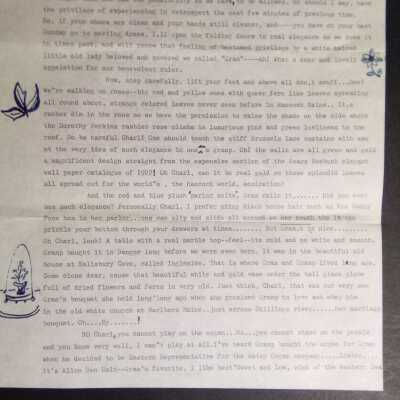 the privilege of experiencing in retrospect the next few minutes of precious time.
So, if your shoes are clean and your hands still cleaner, and---you have on your best
Sunday go to meeting dress, I'll open the folding doors to real elegance as we knew it
in times past, and will renew that feeling of bestowed privilege by a white haired
little old lady beloved and revered we called "Gram"----Ah! What a dear and lovely
appelation for our benevolent ruler.
Now, step carefully, lift your feet and above all don't scuff...See!
We're walking on roses--big red and yellow ones with queer fern like leaves spreading
all round about, strange colored leaves never seen before in Hancock Maine.. It's
rather dim in the room so we have the permission to raise the shade on the side where
the Dorothy Perkins rambler rose climbs in luxurious pink and green loftiness to the
roof. Do be careful Charl! One should touch the stiff Brussels lace curtains with awe
at the very idea of such elegance in one's grasp. Oh! the walls are all green and gold
a magnificent design straight from the expensive section of the Sears Roebuck elegant
wall paper catalogue of 1902! Oh Charl, can it be real gold on those splendid leaves
all spread out for the world's, the Hancock world, admiration?
And the red and blue plush "parlor suite", Gram calls it...... Did you ever
see such elegance? Personally Charl, I prefer
prickle your bottom through your drawers at times........ But Gram's is nice........
Oh Charl, look! A table with a real marble top--feel--its cold and so white and smooth.
Gramp bought it in Bangor long before we were even born. It was in the beautiful old
house at Salisbury Cove, called Inglesise. That is where Gram and Gramp lived long ago.
Come close dear, cause that beautiful white and gold vase under the tall glass globe
full of dried flowers and ferns is very old. Just think, Charl, that was our very own
Gram's bouquet she held long long ago when she promised Gramp to love and obey him
in the old white church at Marlboro Maine..just across Skillings river......her marriage
bouquet. Oh....My.......!
NO Charl, you cannot play on the organ..No...you cannot stand on the pedals
and you know very well, I can't play at all. I've heard Gramp bought the organ for Gram
when he decided to be Eastern Representative for the Estey Organ company.....